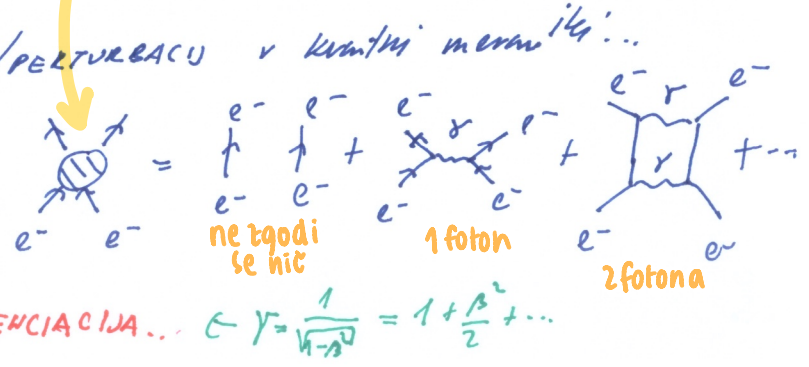 PERTURBACIJ v kvantni mehaniki...
e- e- e- γ e- e- γ e-
= + + γ + ...
e- e- e- e- e- e- e- e-
ne zgodi se nič
1 foton
2 fotona
ENCIACIJA... ← γ = 1/√(1-β²) = 1 + β²/2 + ...